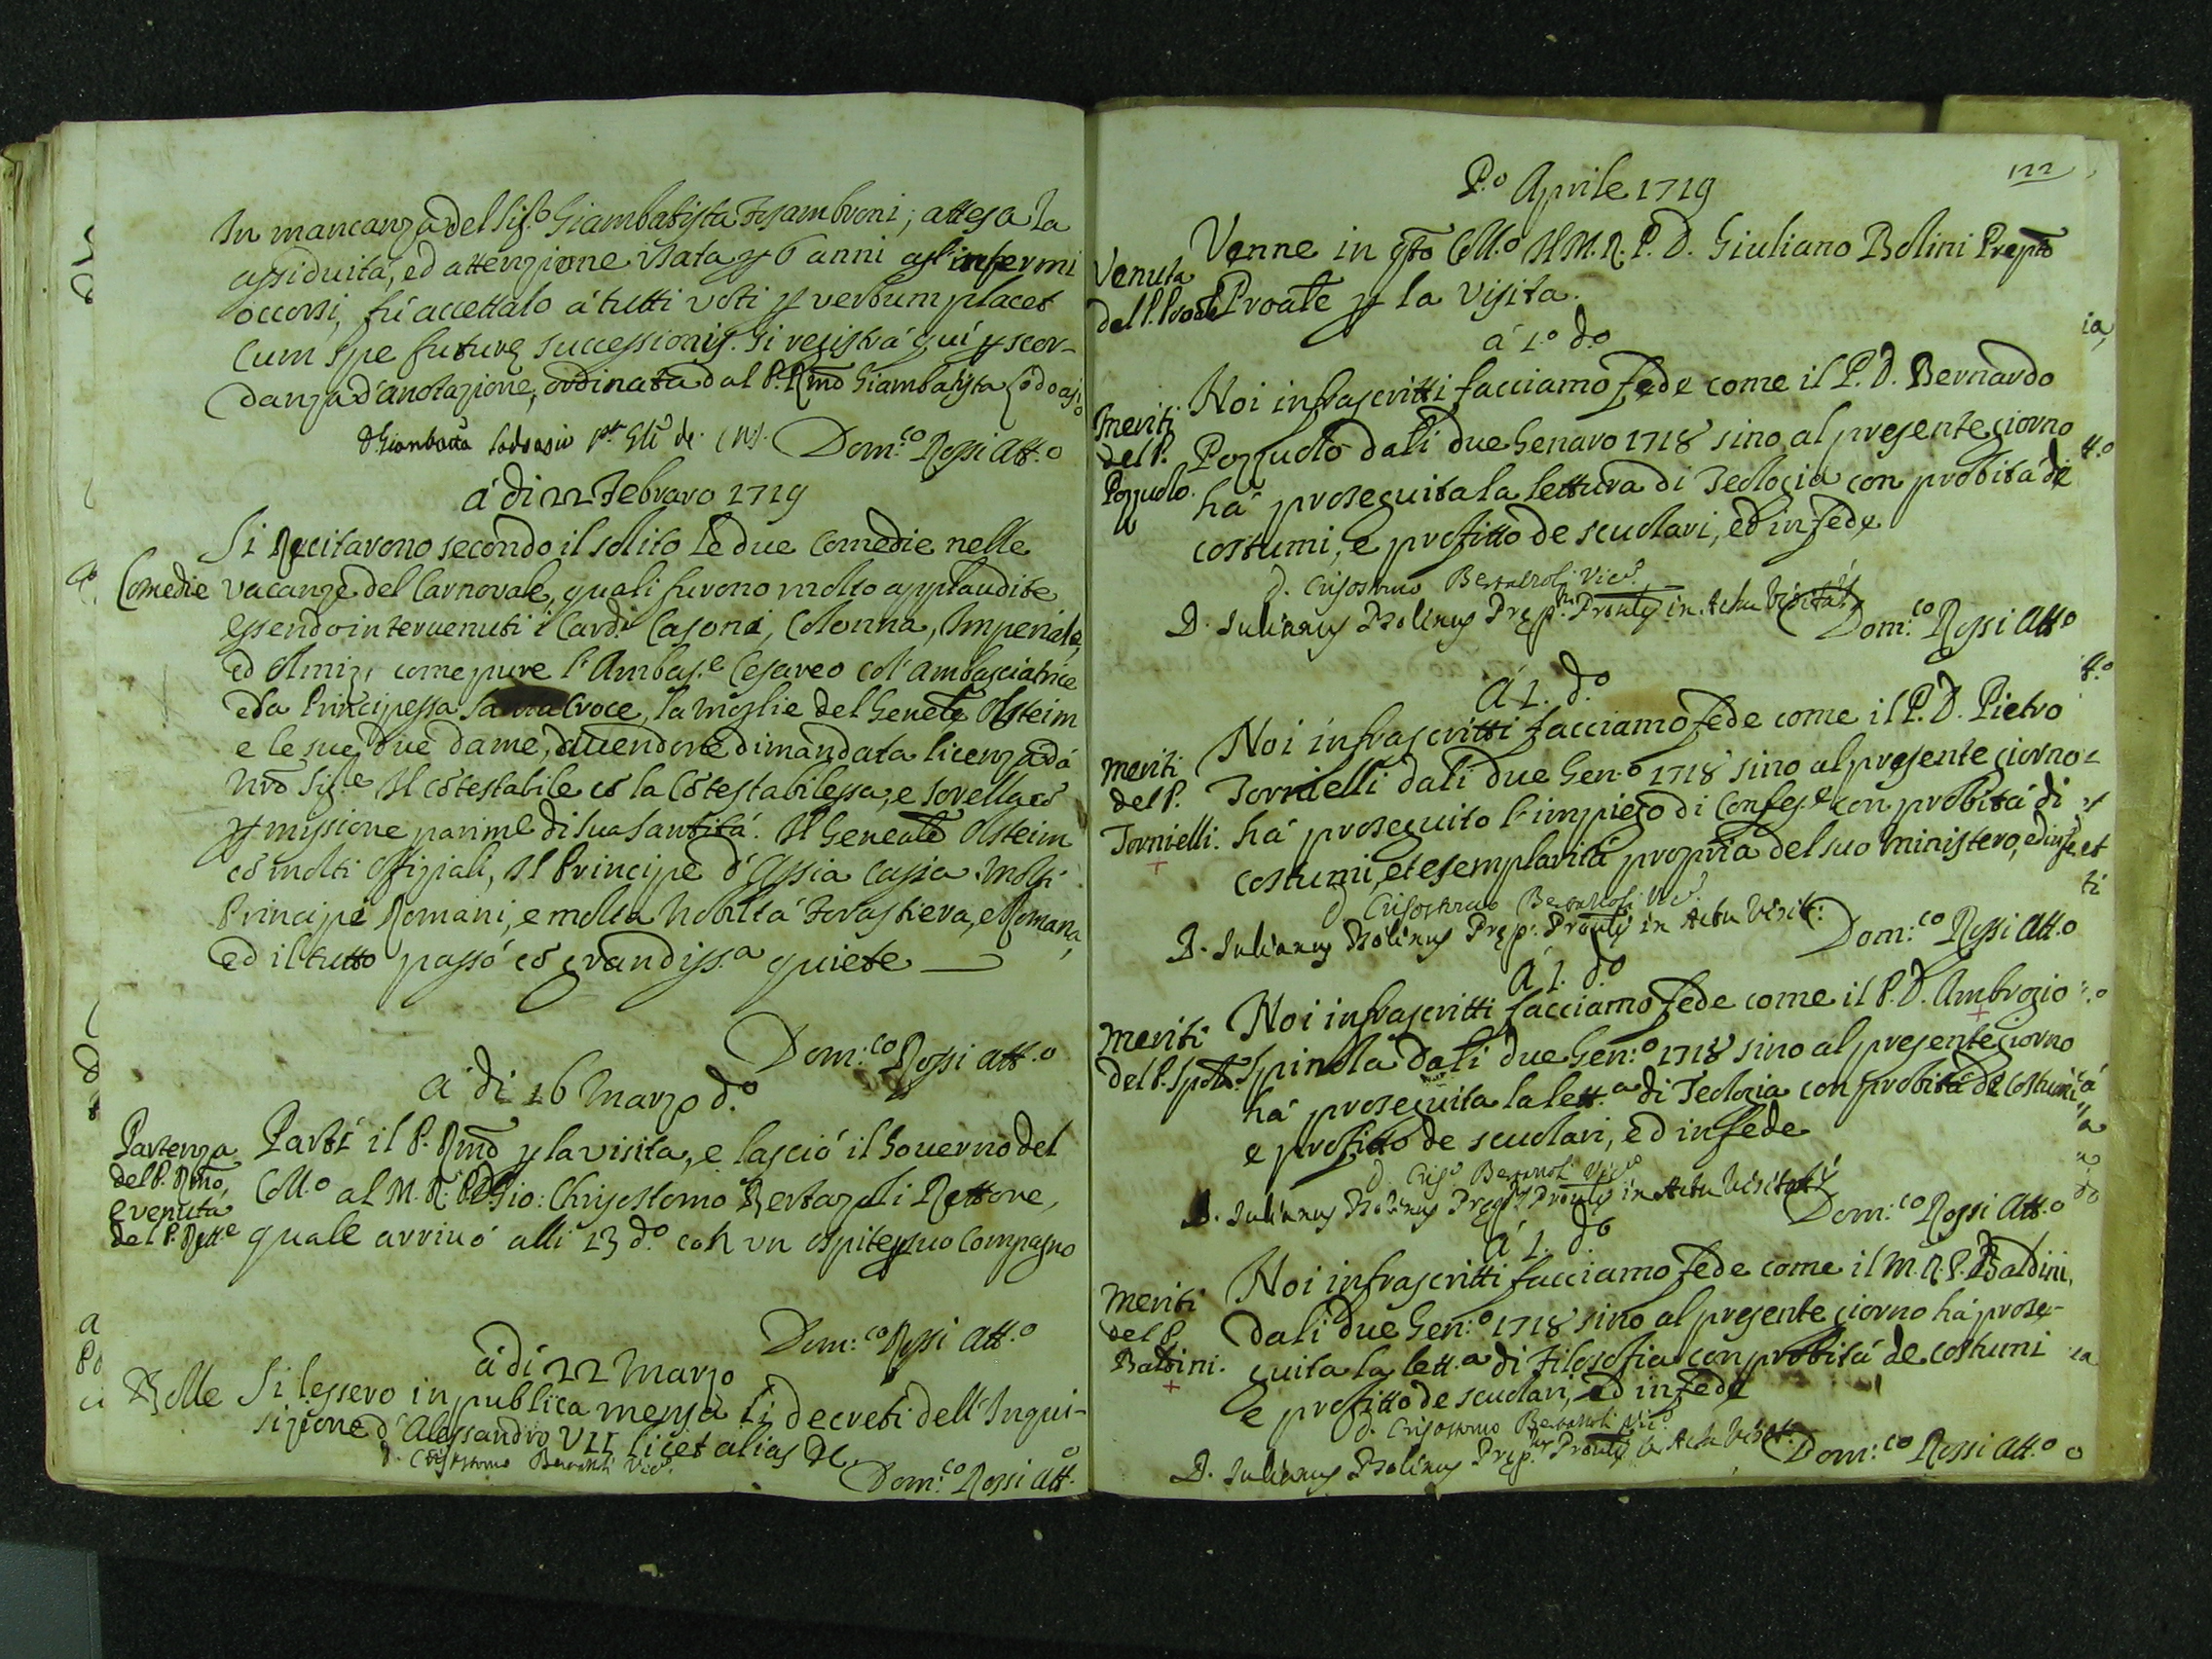 In mancanza del Sig.o Giambatista Tesambroni; attesa la
assiduitá, ed attenzione usata p 6 anni agl'infermi
occorsi, fú accettato á tutti voti p verbum placet
Cum spe future successionis. si registrá quí p scor-
danza d'anotazione, ordinata dal P. Rmo Giambatista Codoasi
Dom.co Rossi Att.o
á di 22 Febraro 1719
Si Recitarono secondo il solito le due Comedie nelle
Comedie vacanze del Carnovale, quali furono molto applaudite
essendo intervenuti i Card.i Casoni, Colonna, Imperiale,
ed Olmiz, come pure l'Ambas.e Cesareo col'ambasciatrice
e la Principessa Santa Croce, la moglie del Genele Olsteim
e le sue due dame, avendone dimandata licenza dá
Nro Sig.e Il Cotestabile co la Cotestabilessa, e sorella co
pmissione parime di sua santitá. Il Geneale Olsteim
co molti offiziali, Il Principe d'Assia Cassia. molti
Principi Romani, e molta Nobiltá forastiera, e Romana,
ed il tutto passó co grandiss.a quiete
Dom:co Rossi att.o
á di 16 Marzo d.o
Partenza
del P. Rmo,
e venuta
del P. Rett.e
Partí il P. Rmo p la visita, e lasció il Governo del
Coll.o al M. R. P. D. Gio: Chrisostomo Bertazoli Rettore,
quale arrivó alli 13 d.o con un ospite suo Compagno
Dom:co Rossi att.o
á di 22 Marzo
Bolle Si lessero in publica mensa li decreti dell'Inqui-
sizione d'Alessandro VII licet alias &c.
Dom:co Rossi att.o
122
P.o Aprile 1719
Venuta
del P. Proale
Venne in qto Coll.o Il M. R. P. D. Giuliano Bolini Prepto
Proale p la visita.
á 1.o d.o
Meriti
del P.
Pozzuolo.
Noi infrascritti facciamo fede come il P. D. Bernardo
Pozzuolo dali due Genaro 1718 sino al presente giorno
há proseguita la lettura di Teologia con probitá di
costumi, e profitto de scuolari, ed in fede
D. Crisostomo Bertazzoli Vic.o
D. Iulianus Bolinus Prep.tus Proulis in Actu Visitats
Dom:co Rossi Att.o
Á 1. d.o
Meriti
del P.
Tornielli.
Noi infrascritti facciamo fede come il P. D. Pietro
Tornielli dali due Gen.o 1718 sino al presente giorno
há proseguito l'impiego di Confess.e con probitá di
costumi, et esemplaritá propria del suo ministero, ed in fe
D. Crisostomo Bertazzoli Vic.o
D. Iulianus Bolinus Prep. Proulis in Actu Visit:
Dom:co Rossi Att.o
Á 1. d.o
Meriti
del P. Spola
Noi infrascritti facciamo fede come il P. D. Ambrogio
Spinola dali due Gen:o 1718 sino al presente giorno
há proseguita la lett.a di Teologia con probitá de costumi
e profitto de scuolari, ed in fede
D. Iulianus Bolinus Prep. Proulis in Actu Visitatis
Dom:co Rossi Att.o
Á 1. d.o
Meriti
del P.
Baldini.
Noi infrascritti facciamo fede come il M. R. P. Baldini,
dali due Gen:o 1718 sino al presente giorno há prose-
guita la lett.a di Filosofia con probitá de costumi
e profitto de scuolari, ed in fede
D. Crisostomo Bertazzoli Vic.o
D. Iulianus Bolinus Prep.tus Proulis in Actu Visit.
Dom:co Rossi Att.o